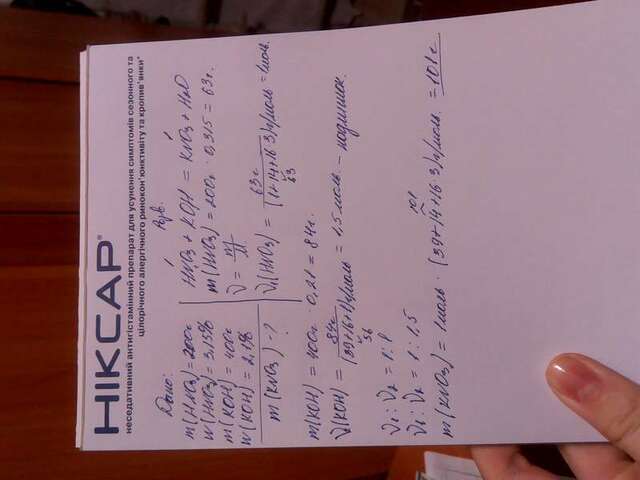 НІКСАР®
неседативний антигістамінний препарат для усунення симптомів сезонного та
цілорічного алергічного ринокон'юнктивіту та кропив'янки"
Дано:
m(HNO3)=200г
w(HNO3)=31,5%
m(KOH)=400г
w(KOH)=21%
m(KNO3)-?
Розв.
HNO3 + KOH = KNO3 + H2O
m(HNO3)=200г · 0,315 = 63г.
ν = m/M
ν1(HNO3) = 63г/(1+14+16·3)г/моль = 1моль.
63
m(KOH) = 400г · 0,21 = 84г.
ν(KOH) = 84г/(39+16+1)г/моль = 1,5 моль – надлишок.
56
ν1 : ν2 = 1 : 1
ν1 : ν2 = 1 : 1,5
m(KNO3) = 1моль · (39+14+16·3)г/моль = 101г
101